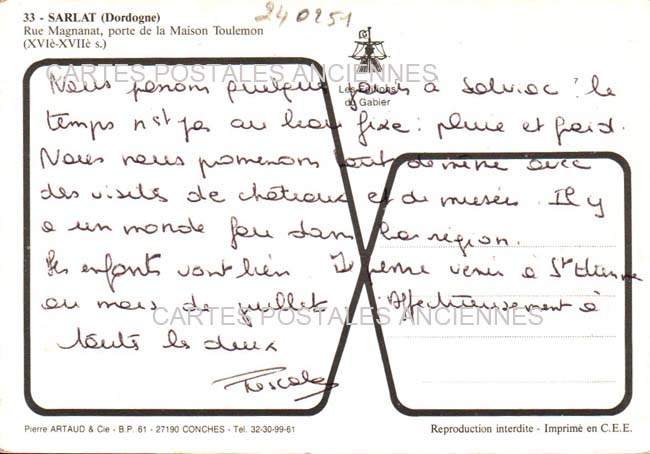 33 - SARLAT (Dordogne)
Rue Magnanat, porte de la Maison Toulemon
(XVIè-XVIIè s.)
240251
Les Editions
du Gabier
CARTES POSTALES ANCIENNES
Nous passons quelques jours à Salviac : le
temps n'est pas au beau fixe : pluie et froid.
Nous nous promenons tout de même avec
des visites de châteaux et de musées. Il y
a un monde fou dans la région.
Les enfants vont bien. Je pense venir à St Etienne
au mois de juillet.
Affectueusement à
toutes les deux
Pascale
CARTES POSTALES ANCIENNES
Pierre ARTAUD & Cie - B.P. 61 - 27190 CONCHES - Tel. 32-30-99-61
Reproduction interdite - Imprimé en C.E.E.